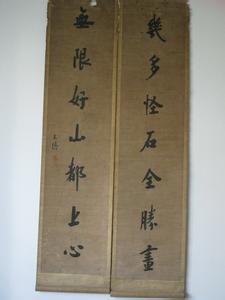 幾多怪石全勝畫
無限好山都上心